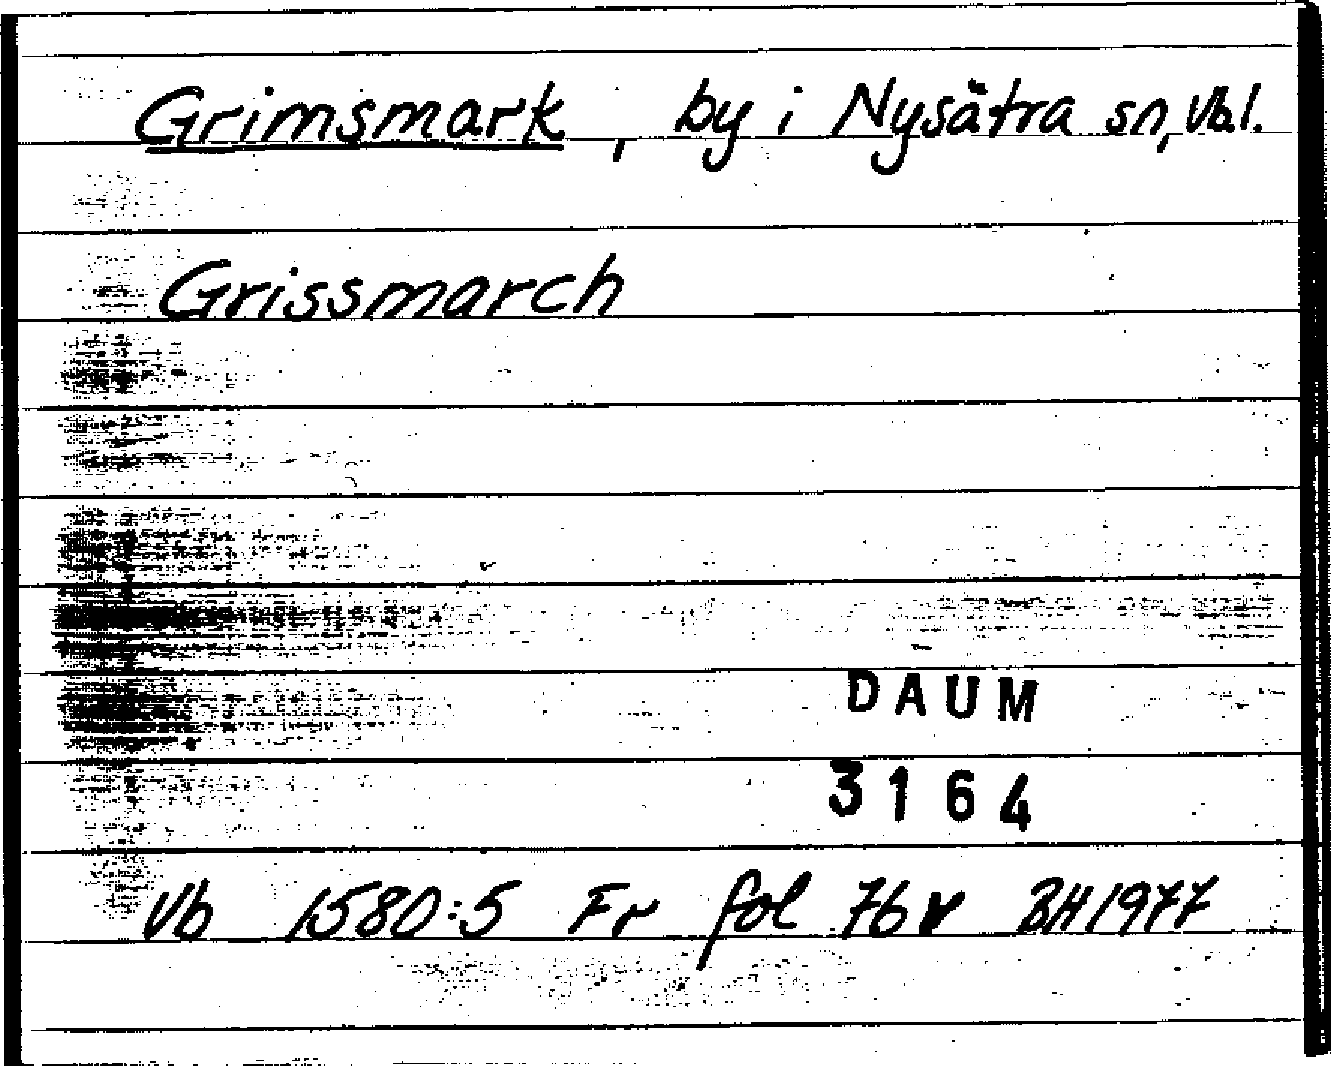 Grimsmark, by i Nysätra sn, Vb.l.
Grissmarch
DAUM
3164
Vb 1580:5 Fr fol 76v BH1977